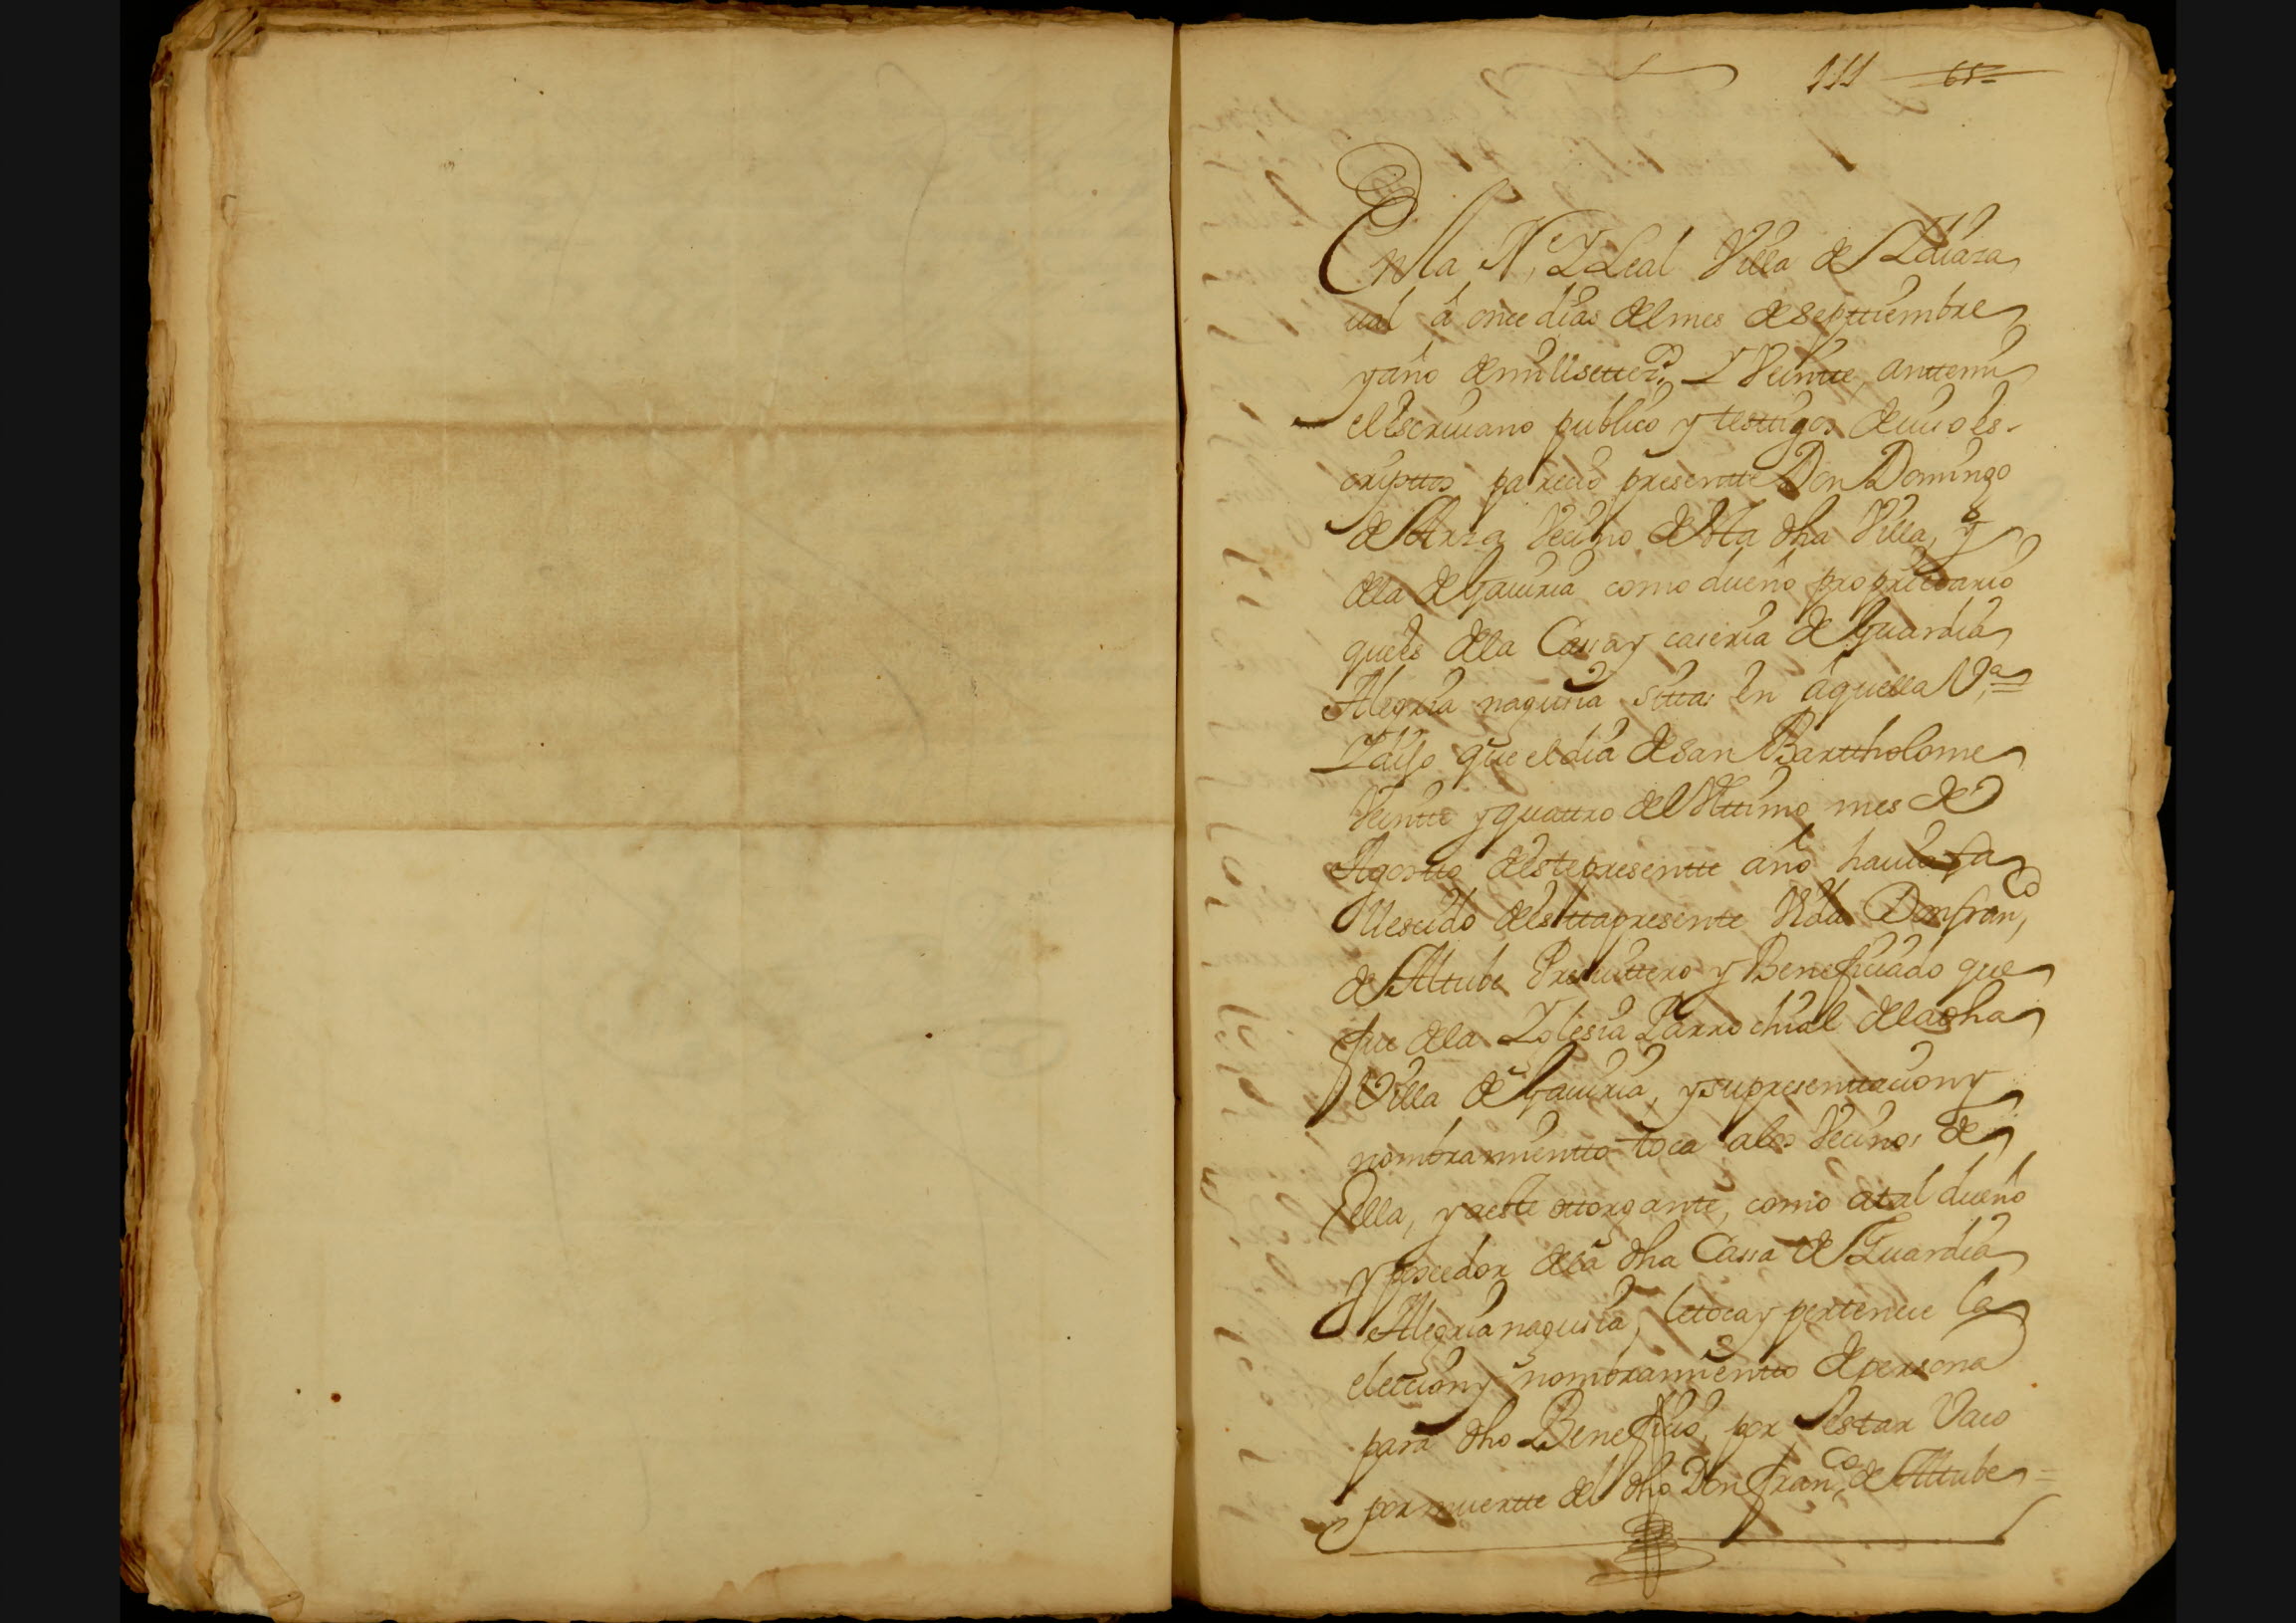 111 65
En la N, Y Leal Villa de Ydiaza
ual â onçe dias del mes de septtiembre
y año de mill settez.os Y Veintte, anttemi
el Escriuano publico y testtigos de iuso es-
cripttos pareçio presentte Don Domingo
de Arza Veçino destta dha Villa, y
dela de Gauiria como dueño proprietario
que es dela Cassa y caseria de Guardia
Alegria nagusia sittas en âquella V.a
Y dijo que el dia de san Barttholome
Veintte y quattro del Vlttimo mes de
Agostto deste presentte año hauia fa
llesçido destta presente Vida Don fran.co
de Altube Presuittero y Benefiçiado que
fue dela Yglesia Parrochial dela dha
Villa de Gauiria, y su presenttaçion y
nombramientto toca alos Veçinos de
ella, y a este ottorgante, como a tal dueño
y poseedor dela dha Cassa de Guardia
Alegria nagusia, le toca y perteneçe la
elecçion y nombramientto de persona
para dho Benefiçio, por estar Vaco
por muertte del dho Don fran.co de Altube =